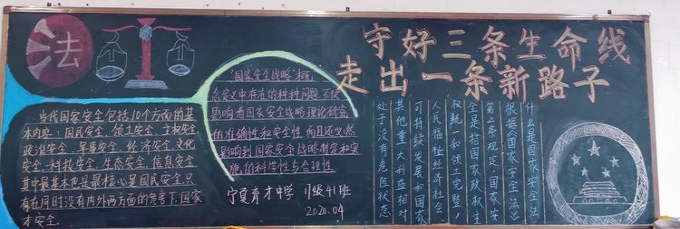 法
当代国家安全包括10个方面的基
本内容:国民安全、领土安全、主权安全
政治安全、军事安全、经济安全、文化
安全、科技安全、生态安全、信息安全
其中最基本也是最核心是国民安全,只
有在同时没有内外两方面的危害下,国家
才安全。
"国家安全战略"本概
念定义中存在的种种问题,不仅
影响着国家安全战略理论研究
的准确性和安全性,而且还必然
影响到国家安全战略制定和实
施的科学性与合理性
宁夏育才中学
2020.04
守好三条生命线
走出一条新路子
什么是国家安全法
根据《国家安全法》
第二条规定,国家安
全是指国家政权、主
权、统一和领土完整、
人民福祉、经济社会
可持续发展和国家
其他重大利益相对
处于没有危险状态